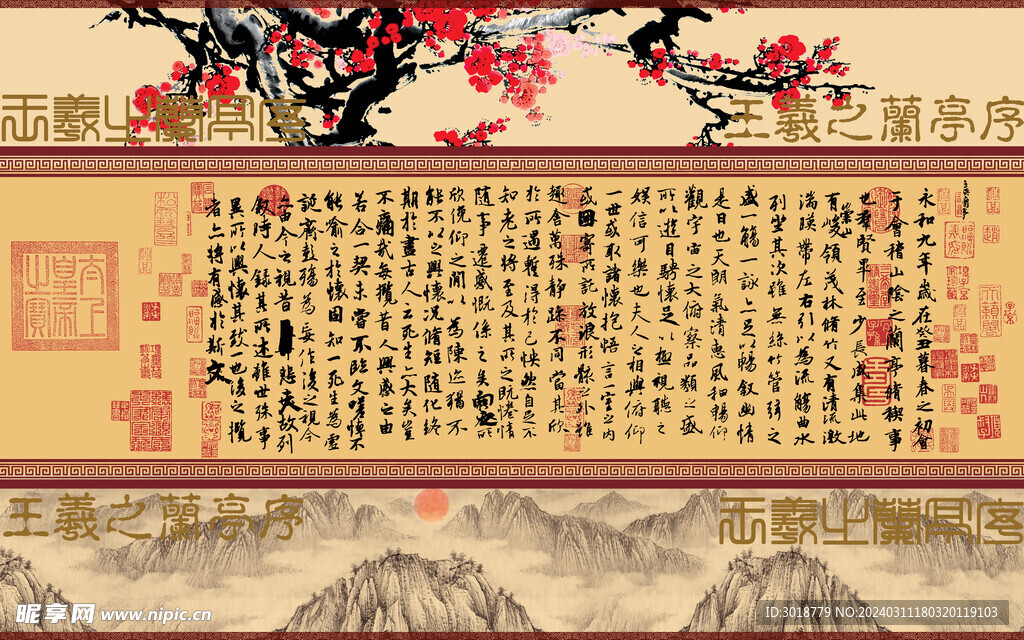 王羲之蘭亭序
王羲之蘭亭序
永和九年歲在癸丑暮春之初會
于會稽山陰之蘭亭脩稧事
也羣賢畢至少長咸集此地
有崇山峻領茂林脩竹又有清流激
湍暎帶左右引以為流觴曲水
列坐其次雖無絲竹管弦之
盛一觴一詠亦足以暢敘幽情
是日也天朗氣清惠風和暢仰
觀宇宙之大俯察品類之盛
所以遊目騁懷足以極視聽之
娛信可樂也夫人之相與俯仰
一世或取諸懷抱悟言一室之內
或因寄所託放浪形骸之外雖
趣舍萬殊靜躁不同當其欣
於所遇蹔得於己怏然自足不
知老之將至及其所之既惓情
隨事遷感慨係之矣向之所
欣俛仰之閒以為陳迹猶不
能不以之興懷況脩短隨化終
期於盡古人云死生亦大矣豈
不痛哉每攬昔人興感之由
若合一契未嘗不臨文嗟悼不
能喻之於懷固知一死生為虛
誕齊彭殤為妄作後之視今
亦由今之視昔悲夫故列
敘時人錄其所述雖世殊事
異所以興懷其致一也後之攬
者亦將有感於斯文
太上皇帝之寶
王羲之蘭亭序
王羲之蘭亭序
昵享网 www.nipic.cn
ID:3018779 NO:20240311180320119103